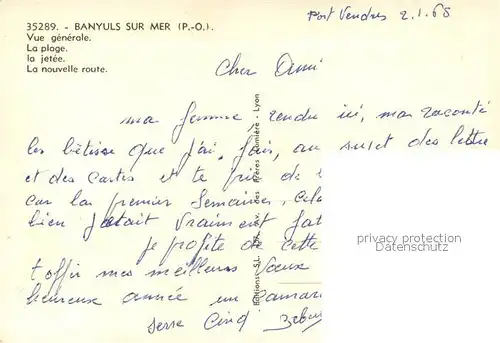 35289. - BANYULS SUR MER (P.-O.).
Vue générale.
La plage.
la jetée.
La nouvelle route.
Port Vendres 2.1.68
Cher Ami
ma femme, rendu ici, ma raconté
les bêtise que j'ai fais, au sujet des lettre
et des cartes et te prie de
car les premier Semaines, Cela
bien j'etait vraiment fat
je profite de cette
t'offrir mes meilleurs Vœux
heureuse année un Camara
serre Cinq
Editions S.L. Av. des Frères Lumière - Lyon
privacy protection
Datenschutz